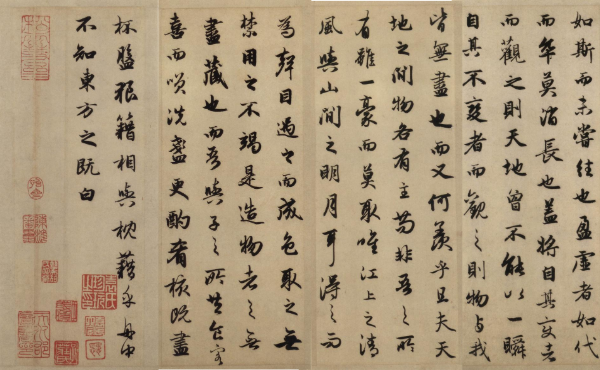 如斯而未嘗往也盈虛者如代
而卒莫消長也蓋將自其變者
而觀之則天地曾不能以一瞬
自其不變者而觀之則物与我
皆無盡也而又何羨乎且夫天
地之間物各有主苟非吾之所
有雖一豪而莫取唯江上之清
風與山間之明月耳得之而
為聲目遇之而成色取之無
禁用之不竭是造物者之無
盡藏也而吾與子之所共食客
喜而咲洗盞更酌肴核既盡
杯盤狼籍相與枕藉乎舟中
不知東方之既白